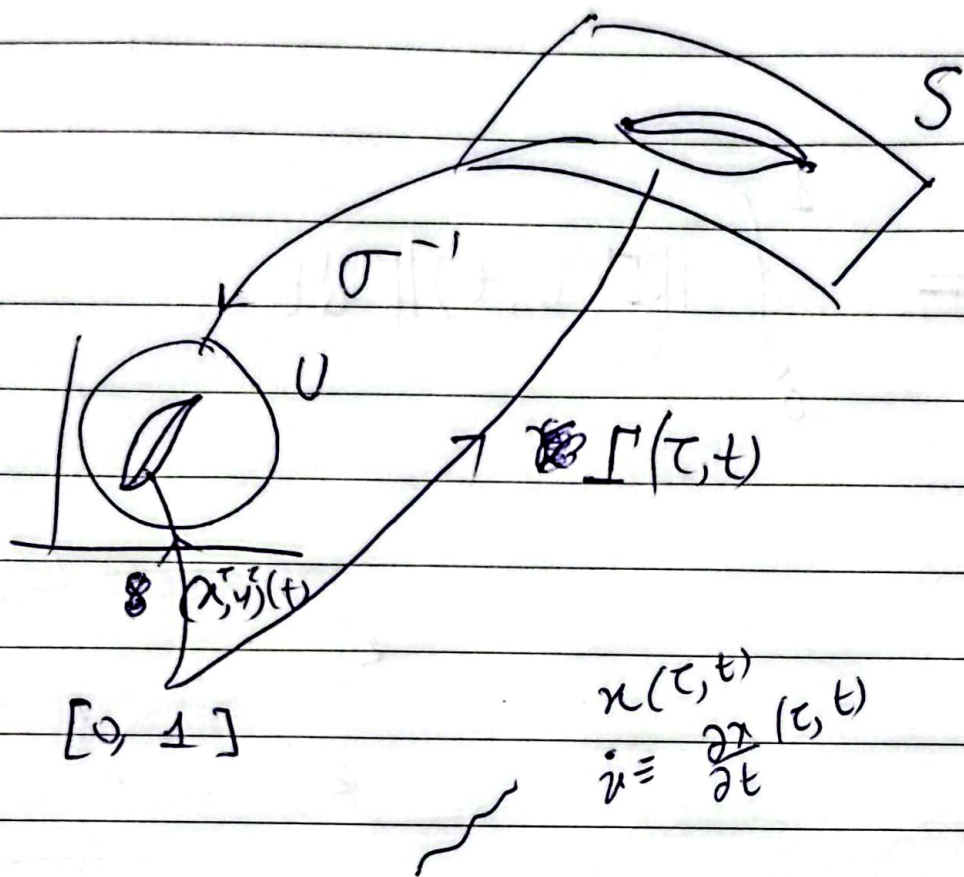 S
σ⁻¹
U
Γ(τ,t)
(x^τ,y^τ)(t)
[0, 1]
x(τ,t)
ẋ ≡ ∂x/∂t (τ,t)